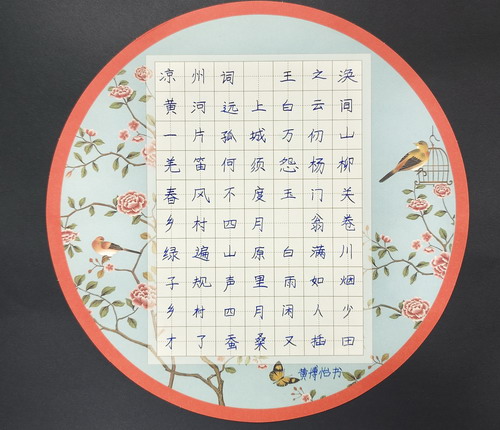 凉州词 王之涣
黄河远上白云间
一片孤城万仞山
羌笛何须怨杨柳
春风不度玉门关
乡村四月 翁卷
绿遍山原白满川
子规声里雨如烟
乡村四月闲人少
才了蚕桑又插田
黄博怡书